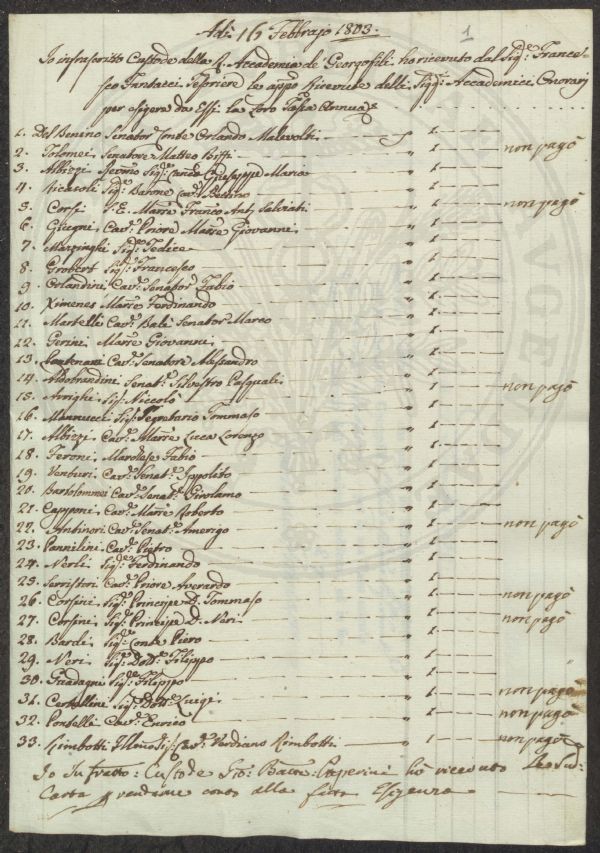 Adì 16 Febbrajo 1803.
1
Io infrascritto Custode della R. Accademia de Georgofili ho ricevuto dal Sig.e France-
sco Fantacci Tesoriere le app.o Ricevute delli Sigg.i Accademici Onorarj
per esigere da Essi la loro Tassa Annua
1. Del Benino Senator Conte Orlando Malevolti — 1 —
2. Tolomei Senatore Matteo Biffi — „ 1 — non pagò
3. Albizzi Sig.e Giuseppe Maria — „ 1 —
4. Ricasoli Sig.e Barone Cav.e Bettino — „ 1 —
5. Corsi S. E. Marse Franco Ant. Salviati — „ 1 — non pagò
6. Ginori Cav.e Priore Marse Giovanni — „ 1 —
7. Sig.e Tedice — „ 1 —
8. Grobert Sig.e Francesco — „ 1 —
9. Orlandini Cav.e Senator Fabio — „ 1 —
10. Ximenes Marse Ferdinando — „ 1 —
11. Martelli Cav.e Balì Senator Marco — „ 1 —
12. Gerini Marse Giovanni — „ 1 —
13. Cav.e Senatore Alessandro — „ 1 —
14. Aldobrandini Senat.e Silvestro Pasquali — „ 1 — non pagò
15. Arrighi Sig. Niccolò — „ 1 —
16. Mannucci Sig. Segretario Tommaso — „ 1 —
17. Albizzi Cav.e Marse Luca Lorenzo — „ 1 —
18. Feroni Marchese Fabio — „ 1 —
19. Venturi Cav.e Senat.e Ippolito — „ 1 —
20. Bartolommei Cav.e Senat.e Girolamo — „ 1 —
21. Capponi Cav.e Marse Roberto — „ 1 —
22. Antinori Cav.e Senat.e Amerigo — „ 1 — non pagò
23. Pannilini Cav.e Pietro — „ 1 —
24. Nerli Sig.e Ferdinando — „ 1 —
25. Serristori Cav.e Priore Averardo — „ 1 —
26. Corsini Sig.e Principe D. Tommaso — „ 1 — non pagò
27. Corsini Sig.e Principe D. Neri — „ 1 — non pagò
28. Bardi Sig.e Conte Piero — „ 1 —
29. Neri Sig.e Dott.e Filippo — „ 1 —
30. Guadagni Sig.e Filippo — „ 1 —
31. Sig.e Dott.e Luigi — „ 1 — non pagò
32. Pontelli Cav.e Enrico — „ 1 — non pagò
33. Rimbotti Sig. Cav.e Verdiano Rimbotti — „ 1 — non pagò
Io Infratto: Custode Gio: Batta: ho ricevuto Le Sud:
Carta renderne conto alla fatta Esigenza